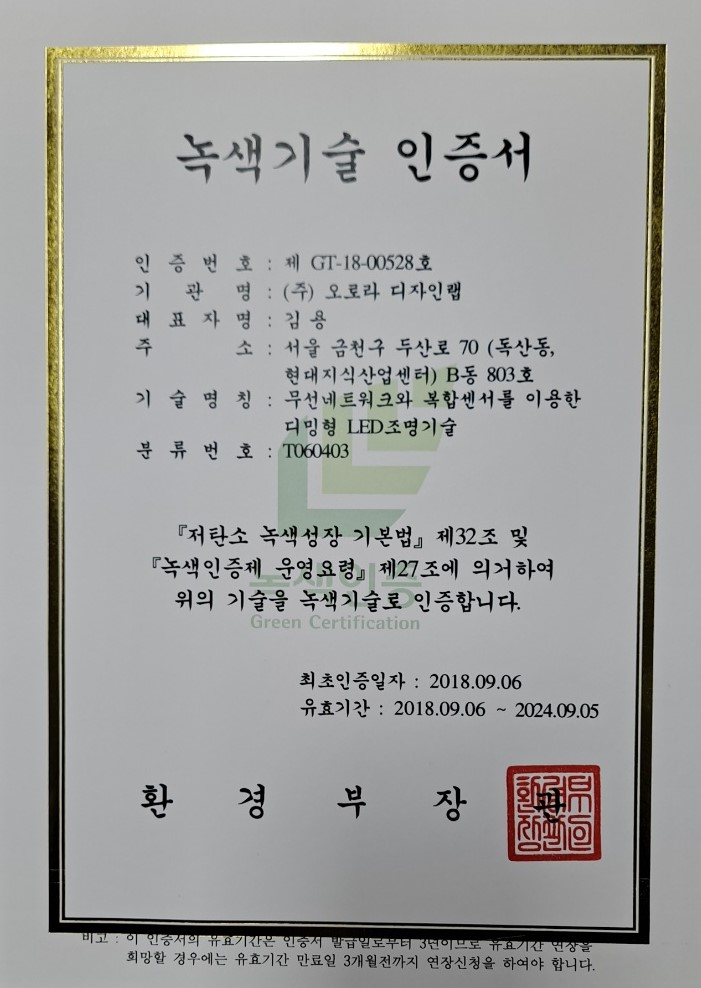 녹색기술 인증서
인 증 번 호 : 제 GT-18-00528호
기 관 명 : (주) 오로라 디자인랩
대 표 자 명 : 김 용
주 소 : 서울 금천구 두산로 70 (독산동,
현대지식산업센터) B동 803호
기 술 명 칭 : 무선네트워크와 복합센서를 이용한
디밍형 LED조명기술
분 류 번 호 : T060403
『저탄소 녹색성장 기본법』 제32조 및
『녹색인증제 운영요령』 제27조에 의거하여
녹색인증
위의 기술을 녹색기술로 인증합니다.
Green Certification
최초인증일자 : 2018.09.06
유효기간 : 2018.09.06 ~ 2024.09.05
환 경 부 장 관
비고 : 이 인증서의 유효기간은 인증서 발급일로부터 3년이므로 유효기간 연장을
희망할 경우에는 유효기간 만료일 3개월전까지 연장신청을 하여야 합니다.